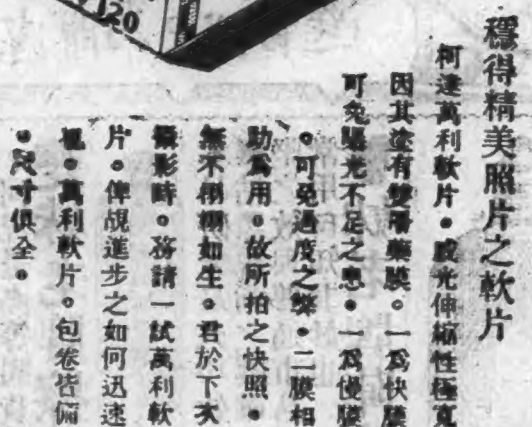 120
穩得精美照片之軟片
柯達萬利軟片。感光伸縮性極寬
因其塗有雙層藥膜。一爲快膜
可免曝光不足之患。一爲慢膜
。可免過度之弊。二膜相
助爲用。故所拍之快照。
無不栩栩如生。君於下次
攝影時。務請一試萬利軟
片。俾覘進步之如何迅速
也。萬利軟片。包卷皆備
。尺寸俱全。